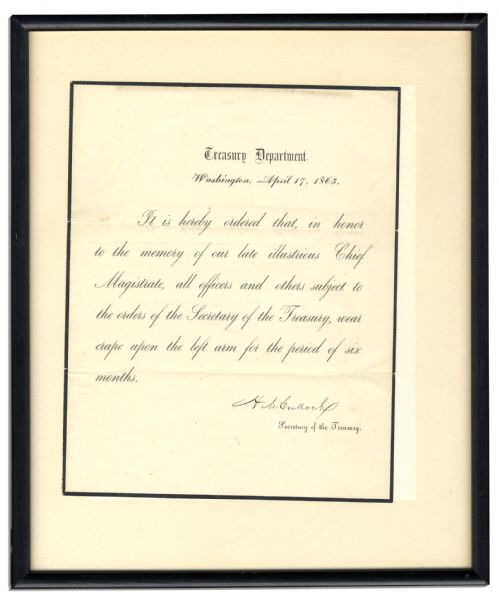 Treasury Department.
Washington, April 17, 1865.
It is hereby ordered that, in honor
to the memory of our late illustrious Chief
Magistrate, all officers and others subject to
the orders of the Secretary of the Treasury, wear
crape upon the left arm for the period of six
months.
H McCulloch
Secretary of the Treasury.